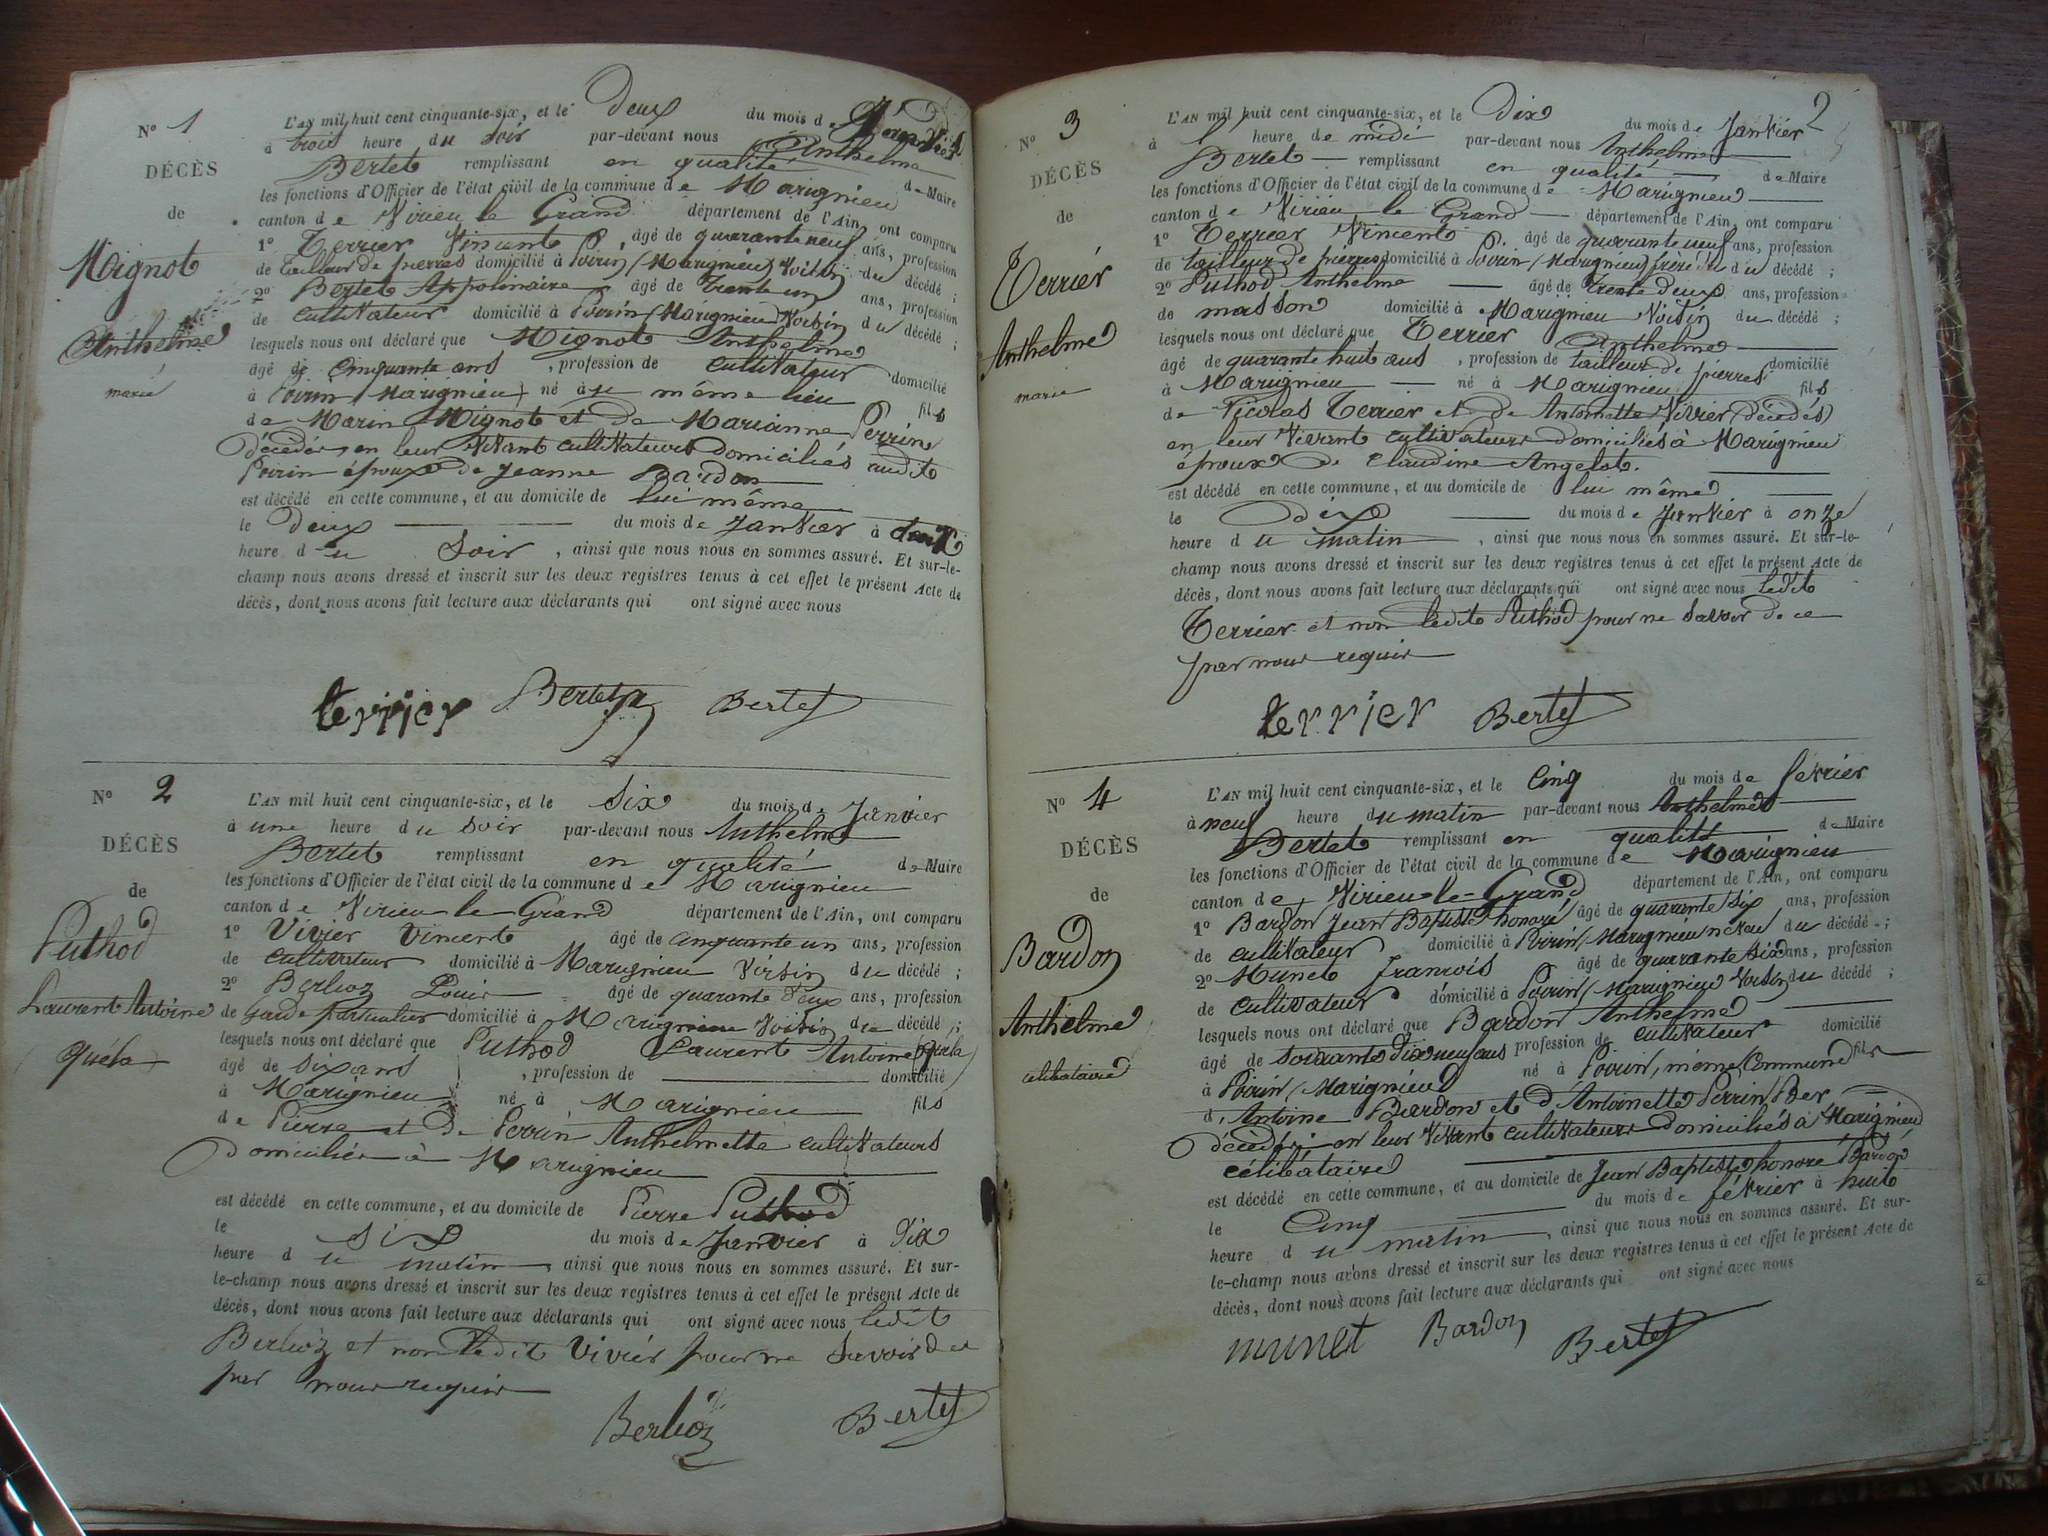 N° 1
DÉCÈS
de
Mignot
Anthelme
marié
L'AN mil huit cent cinquante-six, et le deux du mois de
à trois heure du soir par-devant nous Anthelme
Bertet remplissant en qualité de Maire
les fonctions d'Officier de l'état civil de la commune de Marignieu
canton de Virieu le Grand département de l'Ain, ont comparu
1° Terrier Vincent P. âgé de quarante neuf ans, profession
de tailleur de pierres domicilié à Poirin (Marignieu) voisin du décédé ;
2° Bertet Appolinaire âgé de trente un ans, profession
de cultivateur domicilié à Poirin (Marignieu) voisin du décédé ;
lesquels nous ont déclaré que Mignot Anthelme
âgé de cinquante ans, profession de cultivateur domicilié
à Poirin (Marignieu) né au même lieu fils
de Marin Mignot et de Marianne Perrin
décédés en leur vivant cultivateurs domiciliés audit
Poirin époux de Jeanne Bardon
est décédé en cette commune, et au domicile de lui même
le deux du mois de Janvier à deux
heure du soir, ainsi que nous nous en sommes assuré. Et sur-le-
champ nous avons dressé et inscrit sur les deux registres tenus à cet effet le présent Acte de
décès, dont nous avons fait lecture aux déclarants qui ont signé avec nous
terrier Bertet Bertet
N° 2
DÉCÈS
de
Puthod
Laurent Antoine
(Quéla)
L'AN mil huit cent cinquante-six, et le six du mois de Janvier
à une heure du soir par-devant nous Anthelme
Bertet remplissant en qualité de Maire
les fonctions d'Officier de l'état civil de la commune de Marignieu
canton de Virieu le Grand département de l'Ain, ont comparu
1° Vivier Vincent âgé de cinquante un ans, profession
de cultivateur domicilié à Marignieu voisin du décédé ;
2° Berlioz Louis âgé de quarante deux ans, profession
de garde particulier domicilié à Marignieu voisin du décédé ;
lesquels nous ont déclaré que Puthod Laurent Antoine (Quéla)
âgé de six ans, profession de domicilié
à Marignieu né à Marignieu fils
de Pierre et de Perrin Anthelmette cultivateurs
domiciliés à Marignieu
est décédé en cette commune, et au domicile de Pierre Puthod
le six du mois de Janvier à dix
heure du matin, ainsi que nous nous en sommes assuré. Et sur-
le-champ nous avons dressé et inscrit sur les deux registres tenus à cet effet le présent Acte de
décès, dont nous avons fait lecture aux déclarants qui ont signé avec nous ledit
Berlioz et non ledit Vivier pour ne savoir de ce
par nous requis
Berlioz Bertet
2
N° 3
DÉCÈS
de
Terrier
Anthelme
marié
L'AN mil huit cent cinquante-six, et le dix du mois de Janvier
à l' heure de midi par-devant nous Anthelme
Bertet remplissant en qualité de Maire
les fonctions d'Officier de l'état civil de la commune de Marignieu
canton de Virieu le Grand département de l'Ain, ont comparu
1° Terrier Vincent P. âgé de quarante neuf ans, profession
de tailleur de pierres domicilié à Poirin (Marignieu) frère du décédé ;
2° Puthod Anthelme âgé de trente deux ans, profession
de masson domicilié à Marignieu voisin du décédé ;
lesquels nous ont déclaré que Terrier Anthelme
âgé de quarante huit ans, profession de tailleur de pierres domicilié
à Marignieu né à Marignieu fils
de Nicolas Terrier et de Antoinette Vivier (décédés)
en leur vivant cultivateurs domiciliés à Marignieu
époux de Claudine Angelot.
est décédé en cette commune, et au domicile de lui même
le dix du mois de Janvier à onze
heure du matin, ainsi que nous nous en sommes assuré. Et sur-le-
champ nous avons dressé et inscrit sur les deux registres tenus à cet effet le présent Acte de
décès, dont nous avons fait lecture aux déclarants qui ont signé avec nous ledit
Terrier et non ledit Puthod pour ne savoir de ce
par nous requis
terrier Bertet
N° 4
DÉCÈS
de
Bardon
Anthelme
célibataire
L'AN mil huit cent cinquante-six, et le cinq du mois de février
à neuf heure du matin par-devant nous Anthelme
Bertet remplissant en qualité de Maire
les fonctions d'Officier de l'état civil de la commune de Marignieu
canton de Virieu-le-Grand département de l'Ain, ont comparu
1° Bardon Jean Baptiste honoré âgé de quarante six ans, profession
de cultivateur domicilié à Poirin (Marignieu) neveu du décédé ;
2° Munet françois âgé de quarante six ans, profession
de cultivateur domicilié à Poirin (Marignieu) voisin du décédé ;
lesquels nous ont déclaré que Bardon Anthelme
âgé de soixante dix neuf ans profession de cultivateur domicilié
à Poirin (Marignieu) né à Poirin, même Commune fils
d'Antoine Bardon et d'Antoinette Perrin
décédés en leur vivant cultivateurs domiciliés à Marignieu
célibataire
est décédé en cette commune, et au domicile de Jean Baptiste honoré Bardon
le cinq du mois de février à huit
heure du matin, ainsi que nous nous en sommes assuré. Et sur-
le-champ nous avons dressé et inscrit sur les deux registres tenus à cet effet le présent Acte de
décès, dont nous avons fait lecture aux déclarants qui ont signé avec nous
munet Bardon Bertet